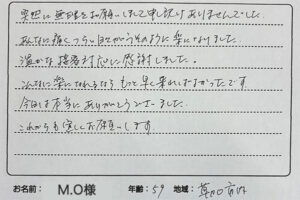 突然に無理をお願いしまして申し訳ありませんでした。
あんなに痛くつらい日々がうそのように楽になりました。
温かな接客対応に感謝しました。
こんなに楽になれるなら もっと早く来ればよかったです
今日は本当にありがとうございました。
これからも宜しくお願いします
お名前: M.O様 年齢: 59 地域: 草加市内